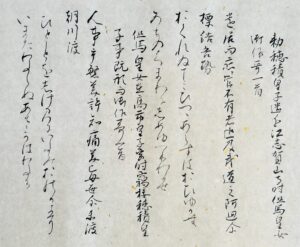 勅穂積皇子遣近江志賀山寺時但馬皇女
御作哥一首
遺居而恋管不有者追及武道之阿廻尓
標結吾勢
おくれゐてこひつゝあらすはおひゆかむ
みちのくまわにしめゆへわかせ
但馬皇女在高市皇子宮時竊接穂積皇
子事既形而御作哥一首
人事乎繁美許知痛美己母世尓未渡
朝川渡
ひとことをしけみこちたみ
いまたわたらぬあさかはわたる